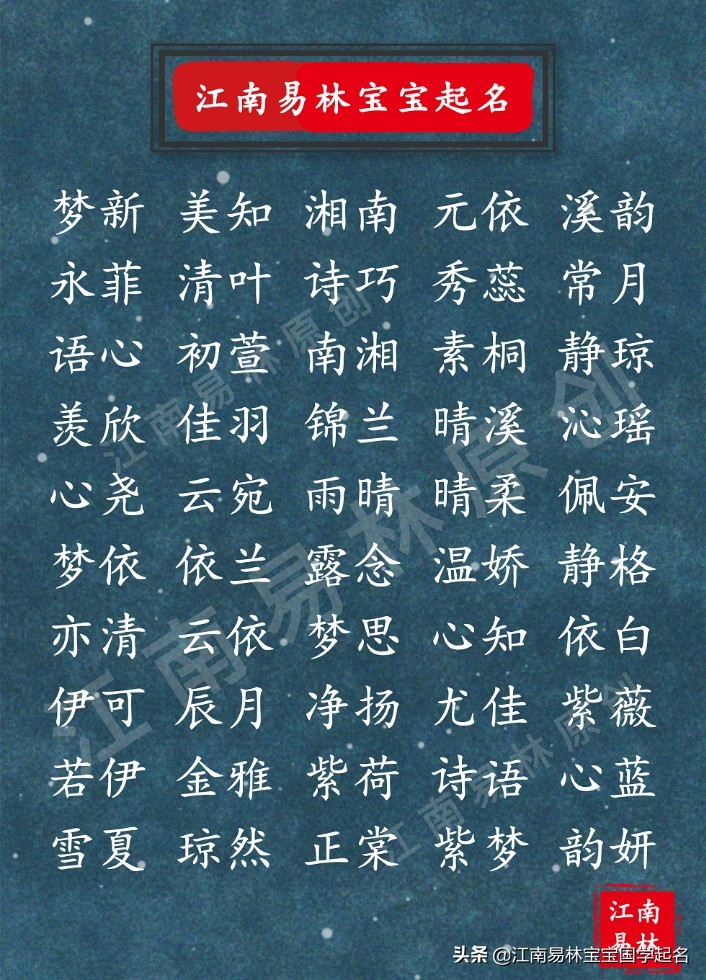 江南易林宝宝起名
梦新 美知 湘南 元依 溪韵
永菲 清叶 诗巧 秀蕊 常月
语心 初萱 南湘 素桐 静琼
羡欣 佳羽 锦兰 晴溪 沁瑶
心尧 云宛 雨晴 晴柔 佩安
梦依 依兰 露念 温娇 静格
亦清 云依 梦思 心知 依白
伊可 辰月 净扬 尤佳 紫薇
若伊 金雅 紫荷 诗语 心蓝
雪夏 琼然 正棠 紫梦 韵妍
江南易林原创
江南易林原创
江南易林原创
江南
易林
头条 @江南易林宝宝国学起名